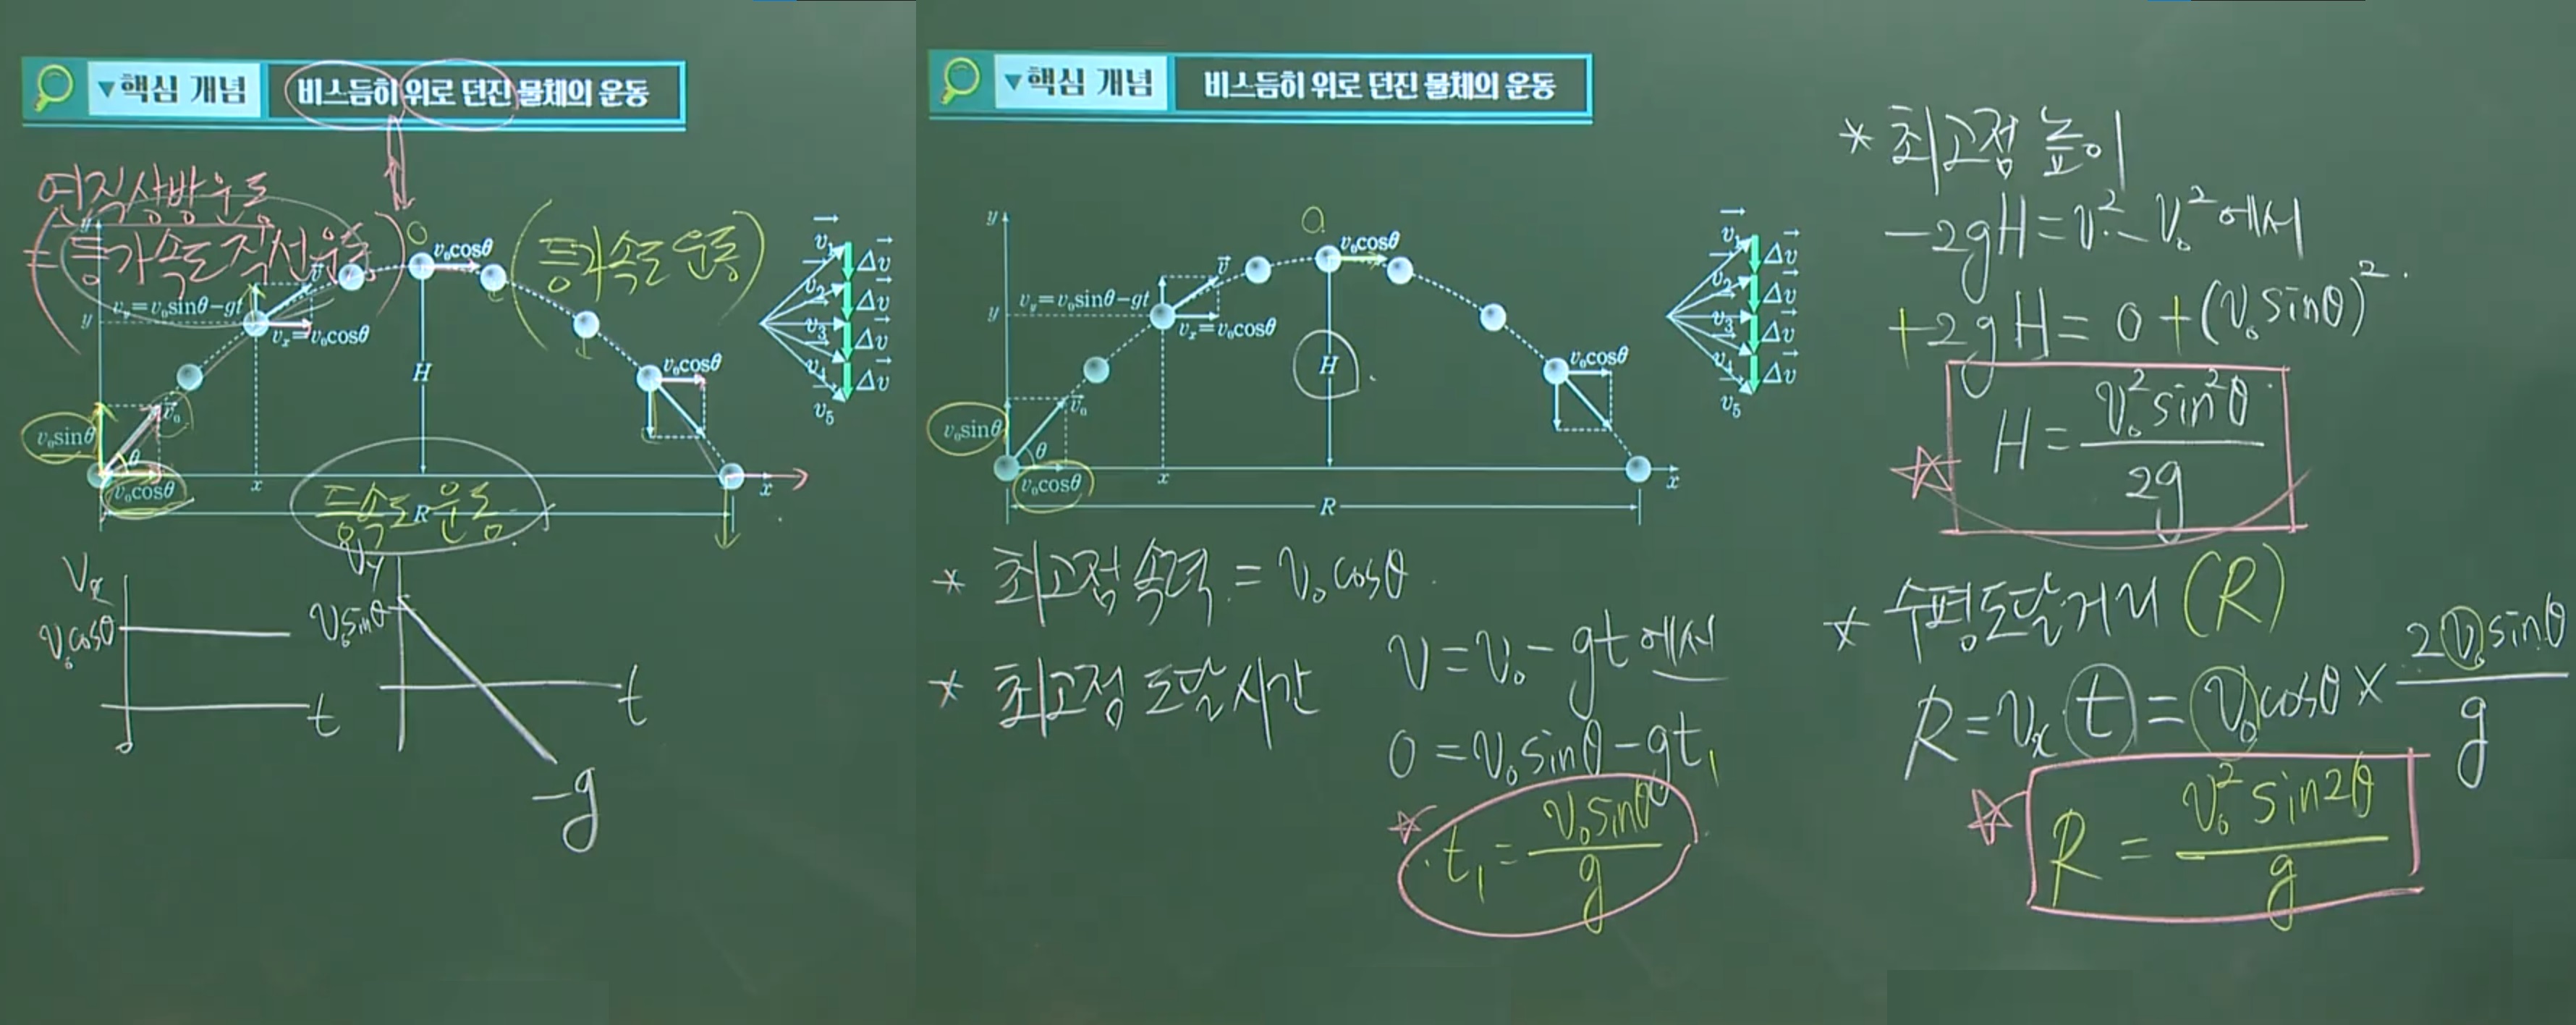 ▼핵심 개념
비스듬히 위로 던진 물체의 운동
연직상방운동
(= 등가속도 직선운동)
(등가속도 운동)
0
y
v₀cosθ
v_y=v₀sinθ-gt
v⃗
y
v_x=v₀cosθ
v₀cosθ
H
v₀sinθ
v⃗₀
θ
v₀cosθ
x
등속도 운동
R
x
v⃗₁
v⃗₂
v⃗₃
v⃗₄
v⃗₅
Δv⃗
Δv⃗
Δv⃗
Δv⃗
Vx
V₀cosθ
t
0
Vy
V₀sinθ
t
-g
▼핵심 개념
비스듬히 위로 던진 물체의 운동
0
y
v₀cosθ
v_y=v₀sinθ-gt
v⃗
y
v_x=v₀cosθ
v₀cosθ
H
v₀sinθ
v⃗₀
θ
v₀cosθ
x
R
x
v⃗₁
v⃗₂
v⃗₃
v⃗₄
v⃗₅
Δv⃗
Δv⃗
Δv⃗
Δv⃗
* 최고점 속력 = V₀cosθ.
* 최고점 도달시간
V = V₀ - gt 에서
0 = V₀sinθ - gt₁
☆ t₁ = V₀sinθ / g
* 최고점 높이
-2gH = V² - V₀² 에서
+2gH = 0 + (V₀sinθ)².
☆ H = V₀²sin²θ / 2g
* 수평도달거리 (R)
R = Vx t = V₀cosθ × 2V₀sinθ / g
☆ R = V₀²sin2θ / g